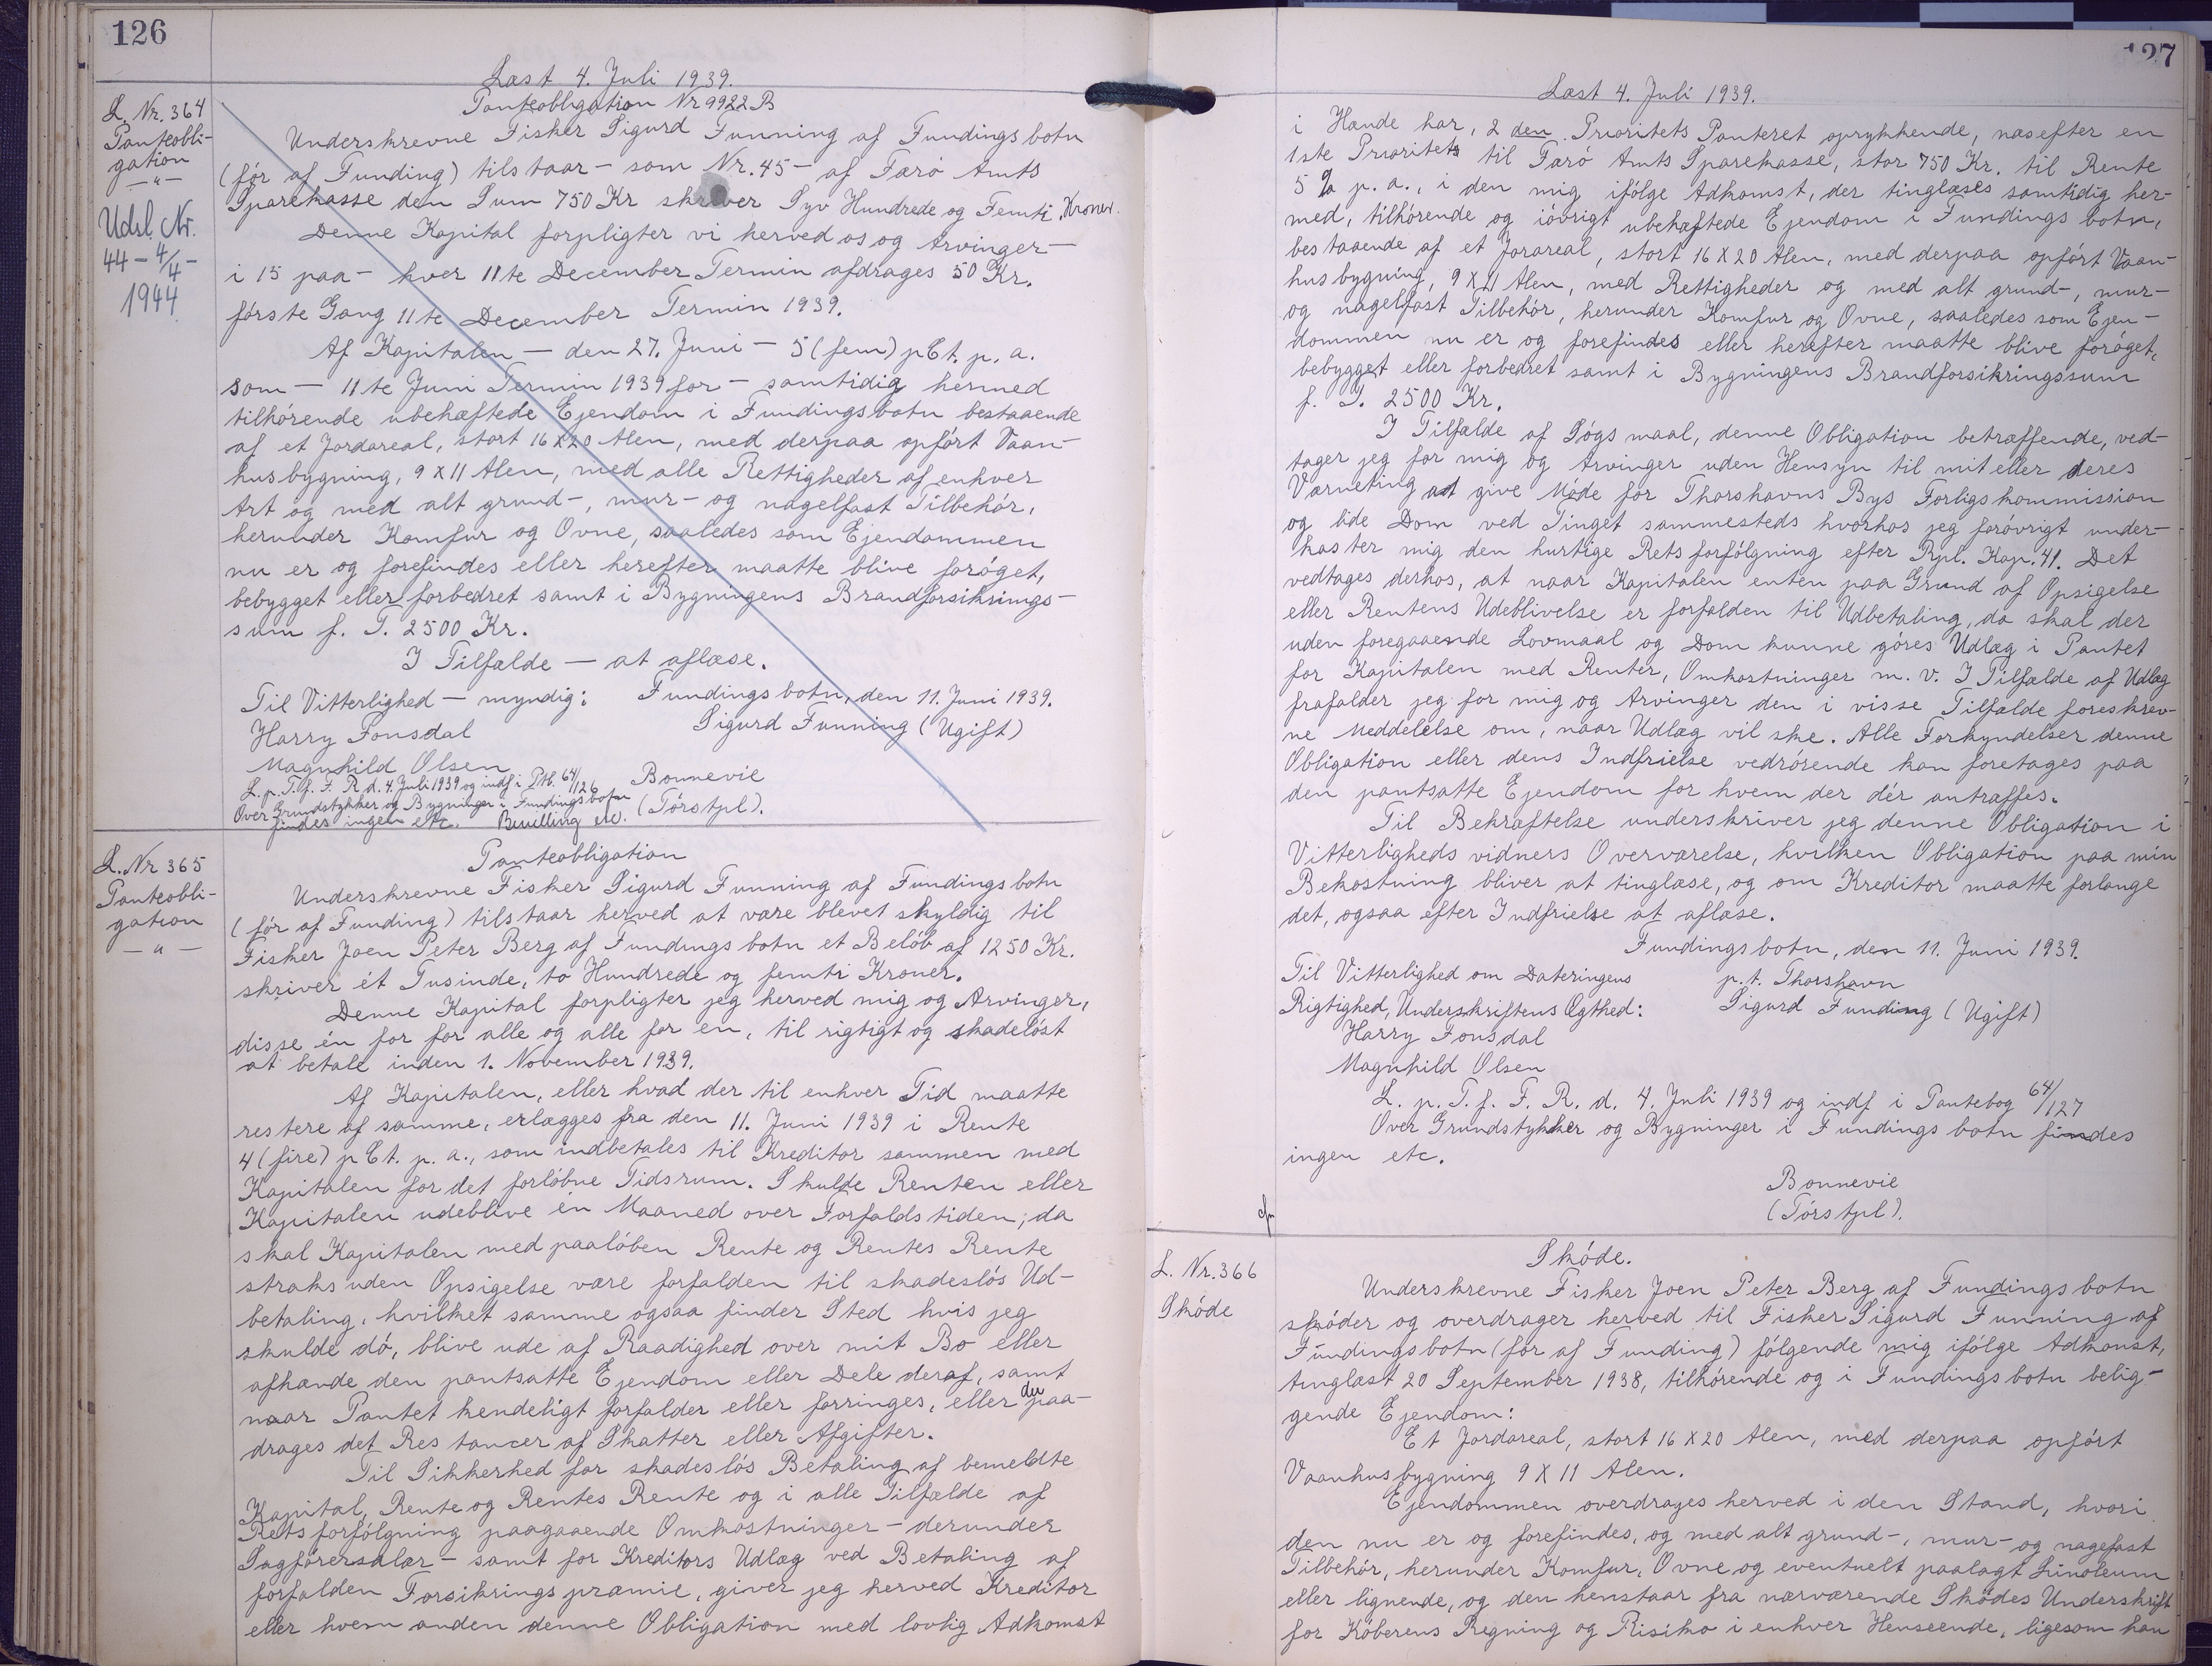 126
Læst 4. Juli 1939.
L. Nr. 364
Panteobli-
gation
— " —
Udsl. Nr.
44 – 4/4 –
1944
Panteobligation Nr 9922 B
Underskrevne Fisker Sigurd Funning af Fundingsbotn
(før af Funding) tilstaar – som Nr. 45 – af Færø Amts
Sparekasse den Sum 750 Kr skriver Syv Hundrede og Femti Kroner.
Denne Kapital forpligter vi herved os og Arvinger –
i 15 paa – hver 11te December Termin afdrages 50 Kr.
første Gang 11te December Termin 1939.
Af Kapitalen – den 27. Juni – 5 (fem) pCt. p. a.
som – 11te Juni Termin 1939 for – samtidig hermed
tilhørende ubehæftede Ejendom i Fundingsbotn bestaaende
af et Jordareal, stort 16 X 20 Alen, med derpaa opført Vaan-
husbygning, 9 X 11 Alen, med alle Rettigheder af enhver
Art og med alt grund-, mur- og nagelfast Tilbehør,
herunder Komfur og Ovne, saaledes som Ejendommen
nu er og forefindes eller herefter maatte blive forøget,
bebygget eller forbedret samt i Bygningens Brandforsikrings-
sum f. T. 2500 Kr.
I Tilfælde – at aflæse.
Til Vitterlighed – myndig: Fundingsbotn, den 11. Juni 1939.
Harry Fonsdal Sigurd Funning (Ugift)
Magnhild Olsen
L. p. T. f. F. R. d. 4. Juli 1939 og indf i Ptb. 64/126 Bonnevie
Over Grundstykker og Bygninger i Fundingsbotn (Tórstpl).
findes ingen etc. Bevilling etc.
L. Nr 365
Panteobli-
gation
— " —
Panteobligation
Underskrevne Fisker Sigurd Funning af Fundingsbotn
(før af Funding) tilstaar herved at være blevet skyldig til
Fisker Joen Peter Berg af Fundingsbotn et Beløb af 1250 Kr.
skriver ét Tusinde, to Hundrede og femti Kroner.
Denne Kapital forpligter jeg herved mig og Arvinger,
disse én for for alle og alle for en, til rigtigt og skadeløst
at betale inden 1. November 1939.
Af Kapitalen, eller hvad der til enhver Tid maatte
restere af samme, erlægges fra den 11. Juni 1939 i Rente
4 (fire) pCt. p. a., som indbetales til Kreditor sammen med
Kapitalen for det forløbne Tidsrum. Skulde Renten eller
Kapitalen udeblive én Maaned over Forfaldstiden, da
skal Kapitalen med paaløben Rente og Rentes Rente
straks uden Opsigelse være forfalden til skadesløs Ud-
betaling, hvilket samme ogsaa finder Sted hvis jeg
skulde dø, blive ude af Raadighed over mit Bo eller
afhænde den pantsatte Ejendom eller Dele deraf, samt
naar Pantet kendeligt forfalder eller forringes, eller der paa-
drages det Restancer af Skatter eller Afgifter.
Til Sikkerhed for skadesløs Betaling af bemeldte
Kapital, Rente og Rentes Rente og i alle Tilfælde af
Retsforfølgning paagaaende Omkostninger – derunder
Sagførersalær – samt for Kreditors Udlæg ved Betaling af
forfalden Forsikringspræmie, giver jeg herved Kreditor
eller hvem anden denne Obligation med lovlig Adkomst
127
Læst 4. Juli 1939.
i Hænde har, 2 den Prioritets Panteret oprykkende, næsefter en
1ste Prioritets til Færø Amts Sparekasse, stor 750 Kr. til Rente
5 % p. a., i den mig ifølge Adkomst, der tinglæses samtidig her-
med, tilhørende og iøvrigt ubehæftede Ejendom i Fundingsbotn,
bestaaende af et Jorareal, stort 16 X 20 Alen, med derpaa opført Vaan-
husbygning, 9 X 11 Alen, med Rettigheder og med alt grund-, mur-
og nagelfast Tilbehør, herunder Komfur og Ovne, saaledes som Ejen-
dommen nu er og forefindes eller herefter maatte blive forøget,
bebygget eller forbedret samt i Bygningens Brandforsikringssum
f. T. 2500 Kr.
I Tilfælde af Søgsmaal, denne Obligation betræffende, ved-
tager jeg for mig og Arvinger uden Hensyn til mit eller deres
Værneting at give Møde for Thorshavns Bys Forligskommission
og lide Dom ved Tinget sammesteds hvorhos jeg forøvrigt under-
kaster mig den hurtige Retsforfølgning efter Rpl. Kap. 41. Det
vedtages derhos, at naar Kapitalen enten paa Grund af Opsigelse
eller Rentens Udeblivelse er forfalden til Udbetaling, da skal der
uden foregaaende Lovmaal og Dom kunne gøres Udlæg i Pantet
for Kapitalen med Renter, Omkostninger m. v. I Tilfælde af Udlæg
frafalder jeg for mig og Arvinger den i visse Tilfælde foreskrev-
ne Meddelelse om, naar Udlæg vil ske. Alle Forkyndelser denne
Obligation eller dens Indfrielse vedrørende kan foretages paa
den pantsatte Ejendom for hvem der dér antræffes.
Til Bekræftelse underskriver jeg denne Obligation i
Vitterlighedsvidners Overværelse, hvilken Obligation paa min
Bekostning bliver at tinglæse, og om Kreditor maatte forlange
det, ogsaa efter Indfrielse at aflæse.
Fundingsbotn, den 11. Juni 1939.
Til Vitterlighed om Dateringens p. t. Thorshavn
Rigtighed, Underskriftens Ægthed: Sigurd Funding (Ugift)
Harry Fonsdal
Magnhild Olsen
L. p. T. f. F. R. d. 4. Juli 1939 og indf i Pantebog 64/127
Over Grundstykker og Bygninger i Fundingsbotn findes
ingen etc.
Bonnevie
(Tórstpl).
L. Nr. 366
Skøde
Skøde.
Underskrevne Fisker Joen Peter Berg af Fundingsbotn
skøder og overdrager herved til Fisker Sigurd Funning af
Fundingsbotn (før af Funding) følgende mig ifølge Adkomst,
tinglæst 20 September 1938, tilhørende og i Fundingsbotn belig-
gende Ejendom:
Et Jordareal, stort 16 X 20 Alen, med derpaa opført
Vaanhusbygning 9 X 11 Alen.
Ejendommen overdrages herved i den Stand, hvori
den nu er og forefindes, og med alt grund-, mur- og nagefast
Tilbehør, herunder Komfur, Ovne og eventuelt paalagt Linoleum
eller lignende, og den henstaar fra nærværende Skødes Underskrift
for Køberens Regning og Risiko i enhver Henseende, ligesom han